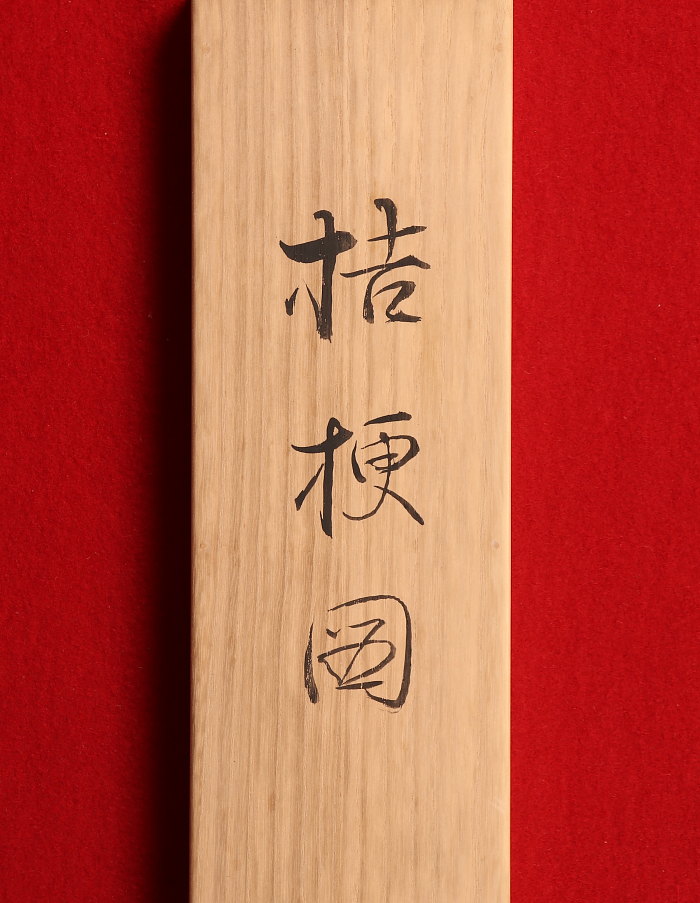 桔梗図